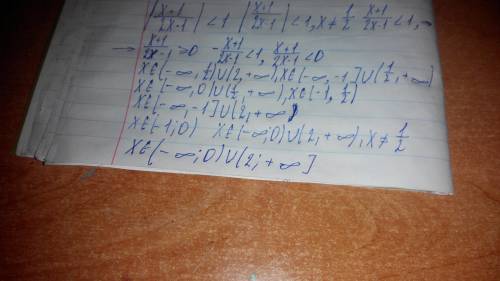 |x+1/2x-1| < 1 |x+1/2x-1| < 1, x ≠ 1/2 x+1/2x-1 < 1,
→ x+1/2x-1 ≥ 0 -x+1/2x-1 < 1, x+1/2x-1 < 0
x∈(-∞, 1/2)∪(2, +∞), x∈(-∞, -1]∪(1/2, +∞)
x∈(-∞, 0)∪(1/2, +∞), x∈(-1, 1/2)
x∈(-∞, -1]∪(2, +∞)
x∈(-1; 0) x∈(-∞; 0)∪(2; +∞), x ≠ 1/2
x∈(-∞; 0)∪(2; +∞]